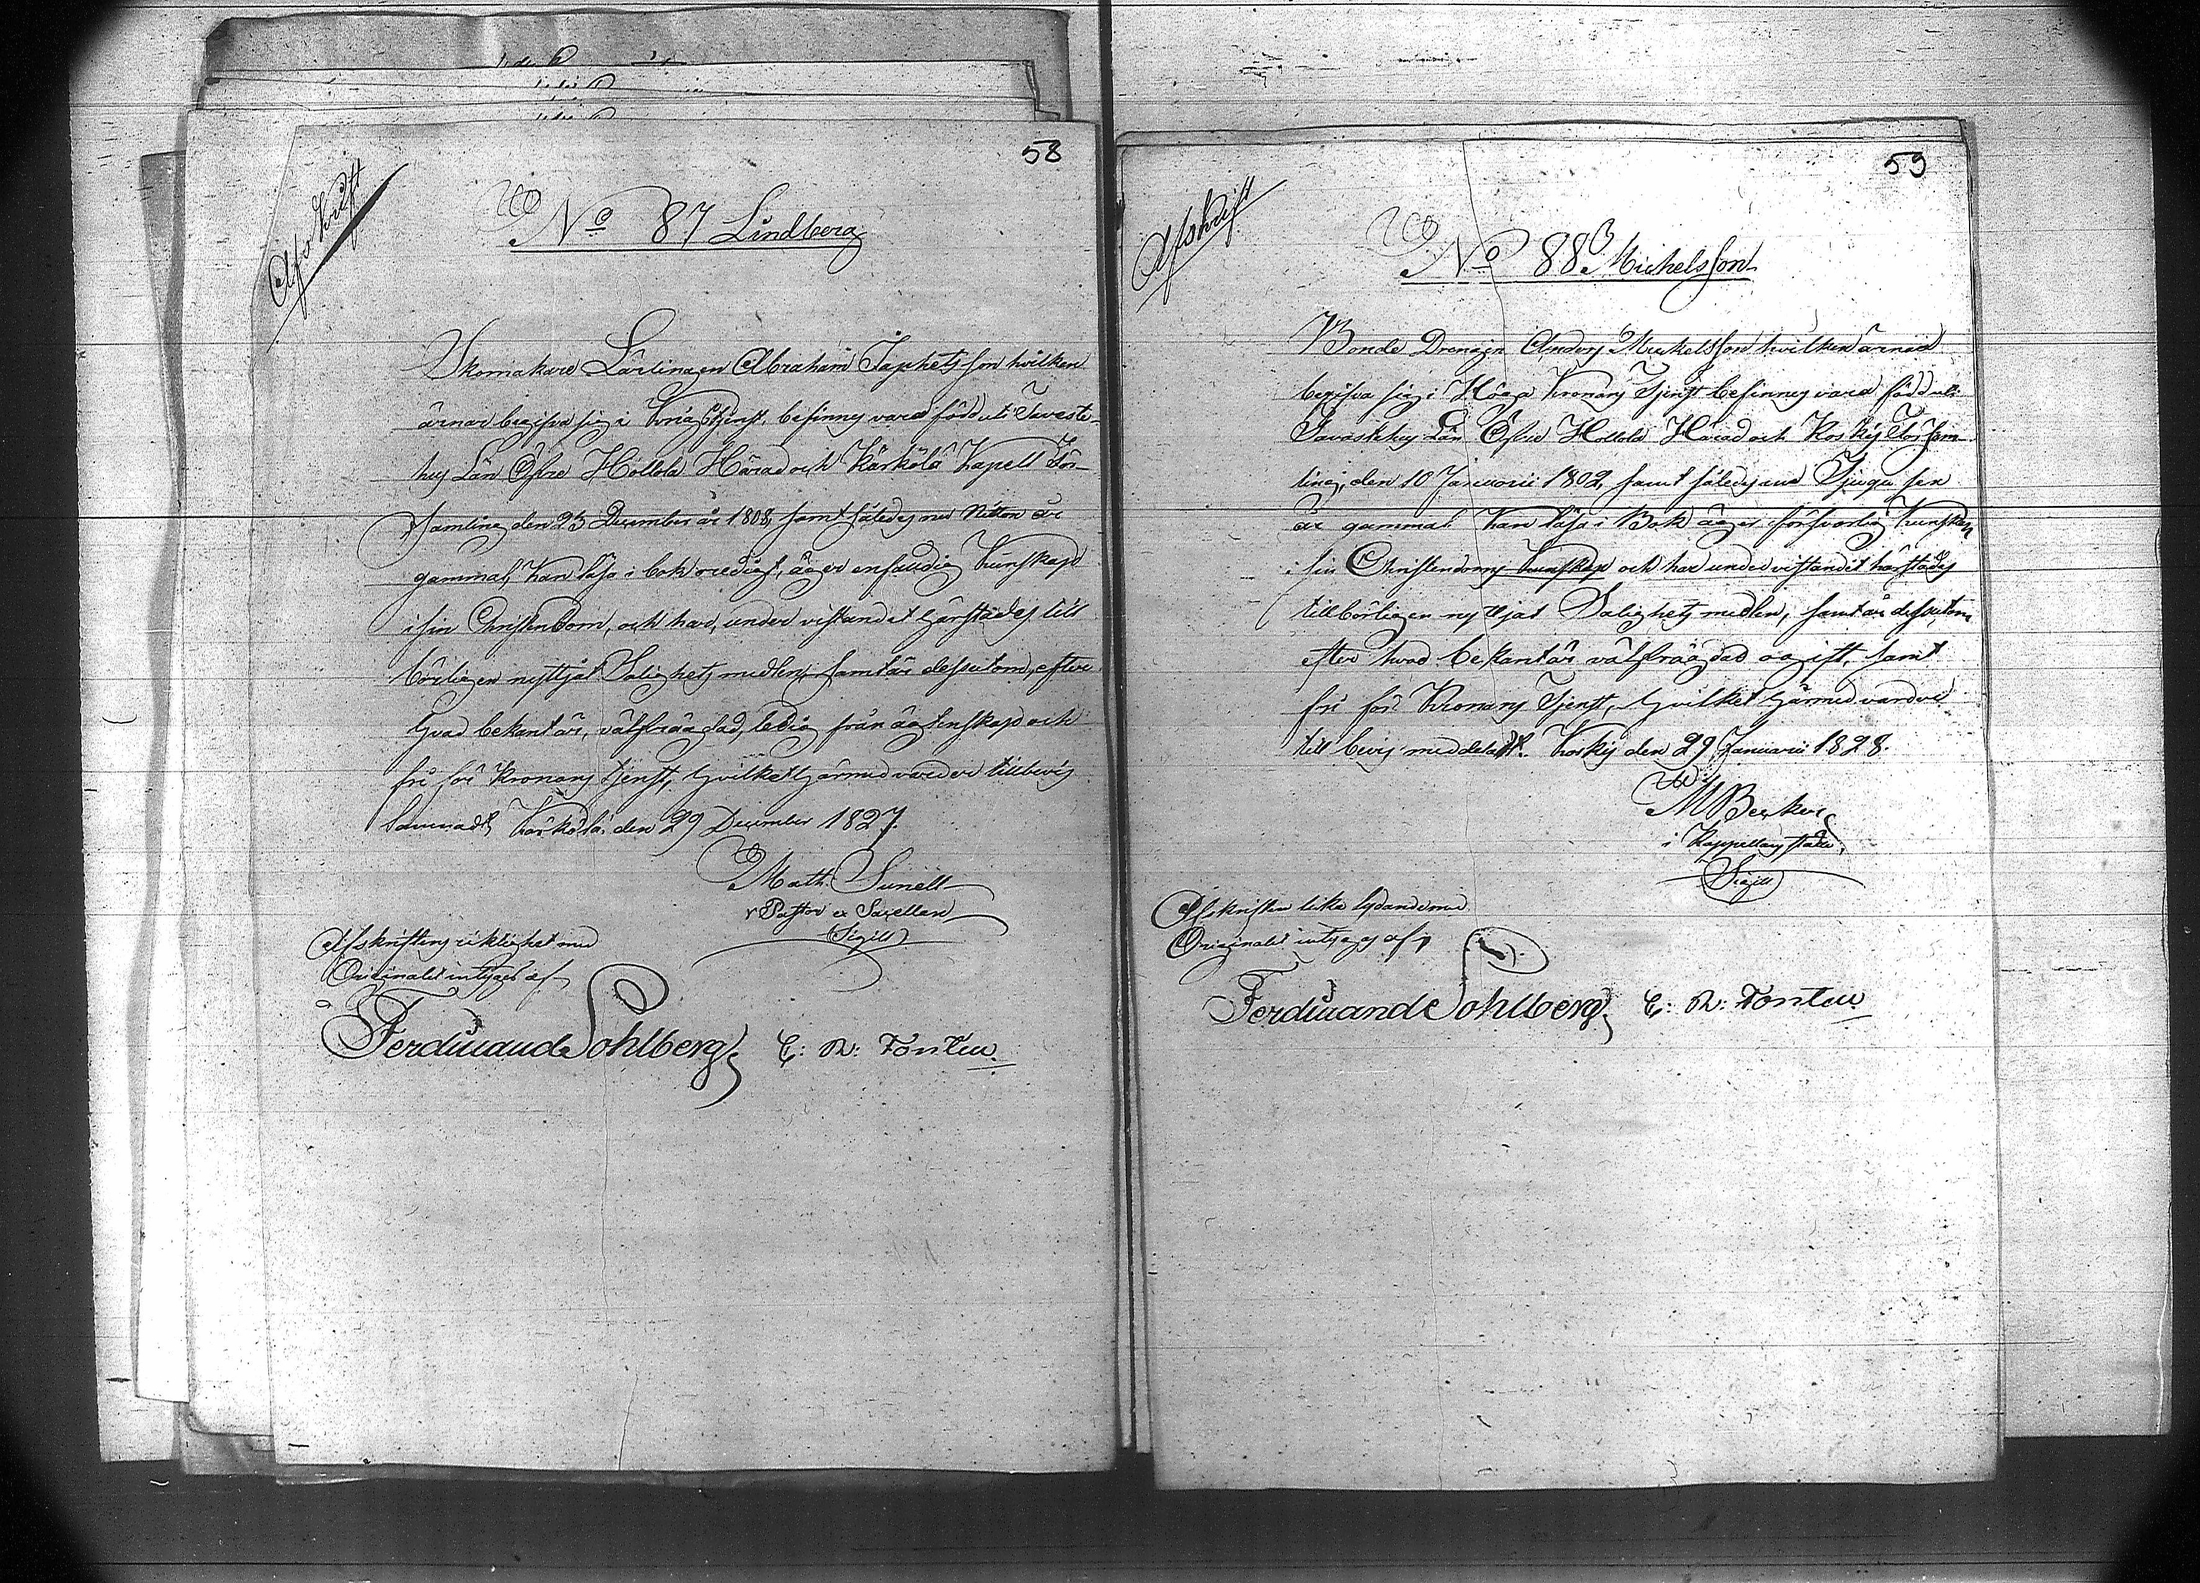 58
Afskrift
No 87 Lindberg
Skomakare Lärlingen Abraham Japhetsson hvilken
ärnar begifva sig i Krigstjenst, befinnes vara född uti Tavaste-
hus Län Öfre Hollola Härad och Kärkölä Kapell För-
samling den 25 December år 1808, samt således nu Nitton år
gammal, kan läsa i bok oredigt, äger enfaldig kunskap
i sin Christendom, och har, under vistandet härstädes till
börligen nyttjat Salighets medlen, samt är dessutom, efter
hvad bekant är, välfrägdad, ledig från ägtenskap och
fri för Kronans tjenst, hvilket härmed varder till bevis
lämnadt Kärkölä den 29 December 1827.
Math. Sunell
v Pastor et Sacellan
(Sigill)
Afskriftens riktighet med
Originalet intygas af
Ferdinand Sohlberg E: R: Tontelin
59
Afskrift
No 88 Michelsson
Bonde Drengen Anders Mickelsson hvilken ärnar
begifva sig i Höga Kronans Tjenst befinnes vara född uti
Tavastehus Län Öfre Hollola Härad och Koskis Församling
ling, den 10 Januarii 1802, samt således nu Tjugu sex
år gammal kan läsa i Bok äger försvarlig kunskap
i sin Christendoms kunskap och har under vistandet härstädes
tillbörligen nyttjat Salighets medlen, samt är dessutom
efter hvad bekant är välfrägdad ogift, samt
fri för Kronans Tjenst, hvilket härmed varder
till bevis meddelat. Koskis den 29 Januarii 1828.
M Becker
i Kappellans ställe
(Sigill)
Afskriften lika lydande med
Originalet intygas af
Ferdinand Sohlberg E: R: Tontelin